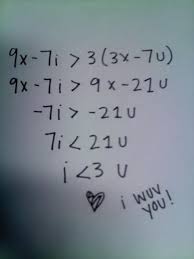 9x-7i > 3(3x-7u)
9x-7i > 9x-21u
-7i > -21u
7i < 21u
i <3 u
i wuv
you!